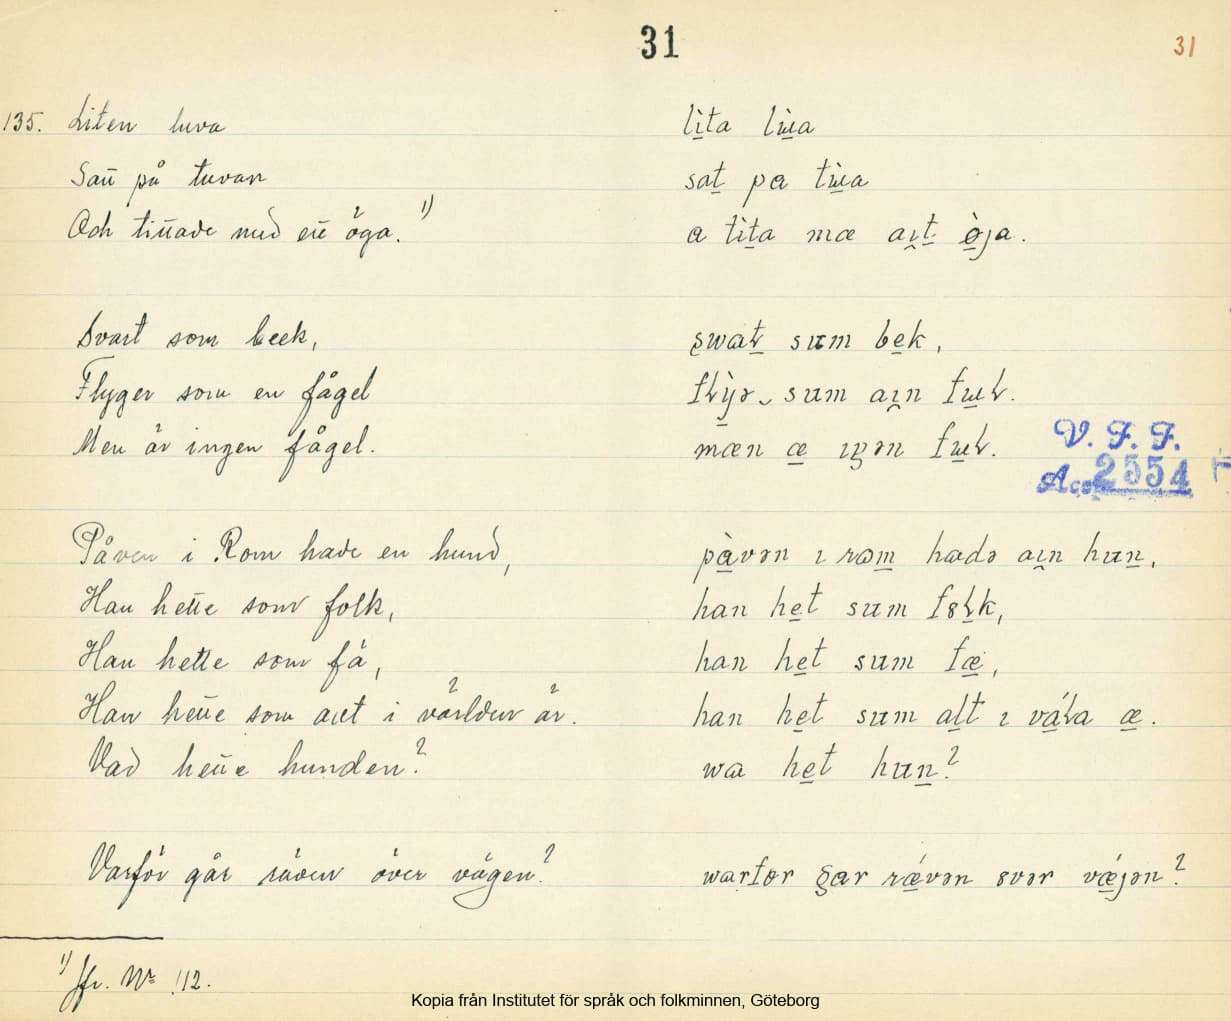 31
31
135. Liten luva
Satt på tuvan
Och tittade med ett öga. 1)
Svart som beck,
Flyger som en fågel
Men är ingen fågel.
Påven i Rom hade en hund,
Han hette som folk,
Han hette som fä,
Han hette som allt i världen är.
Vad hette hunden?
Varför går räven över vägen?
1) Jfr. Nr 112.
lìta lɯ̀a
sat pa tɯ̀a
a tìta mæ aıt ø̀ja.
swaṭ sum bek,
flỳjə sum aın fɯl.
mæn æ ıŋən fɯl.
pàvən ı rom hadə aın hun,
han het sum folk,
han het sum fæ,
han het sum alt ı vála æ.
wa het hun?
V. F. F.
Acc. 2554
Kopia från Institutet för språk och folkminnen, Göteborg